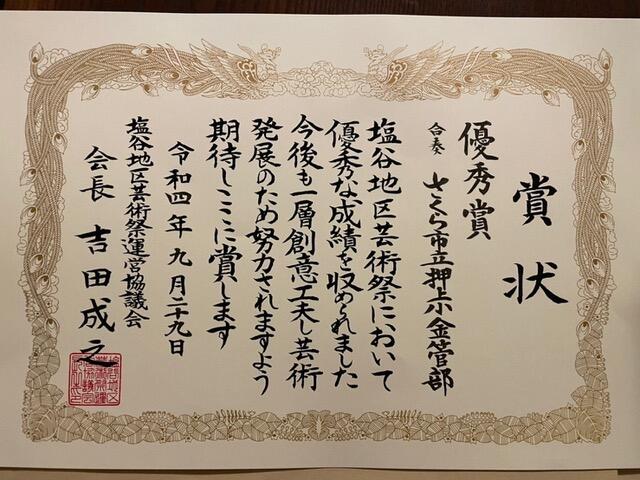 賞状
優秀賞
合奏 さくら市立押上小金管部
塩谷地区芸術祭において
優秀な成績を収められました
今後も一層創意工夫し芸術
発展のため努力されますよう
期待しここに賞します
令和四年九月二十九日
塩谷地区芸術祭運営協議会
会長 吉田成之